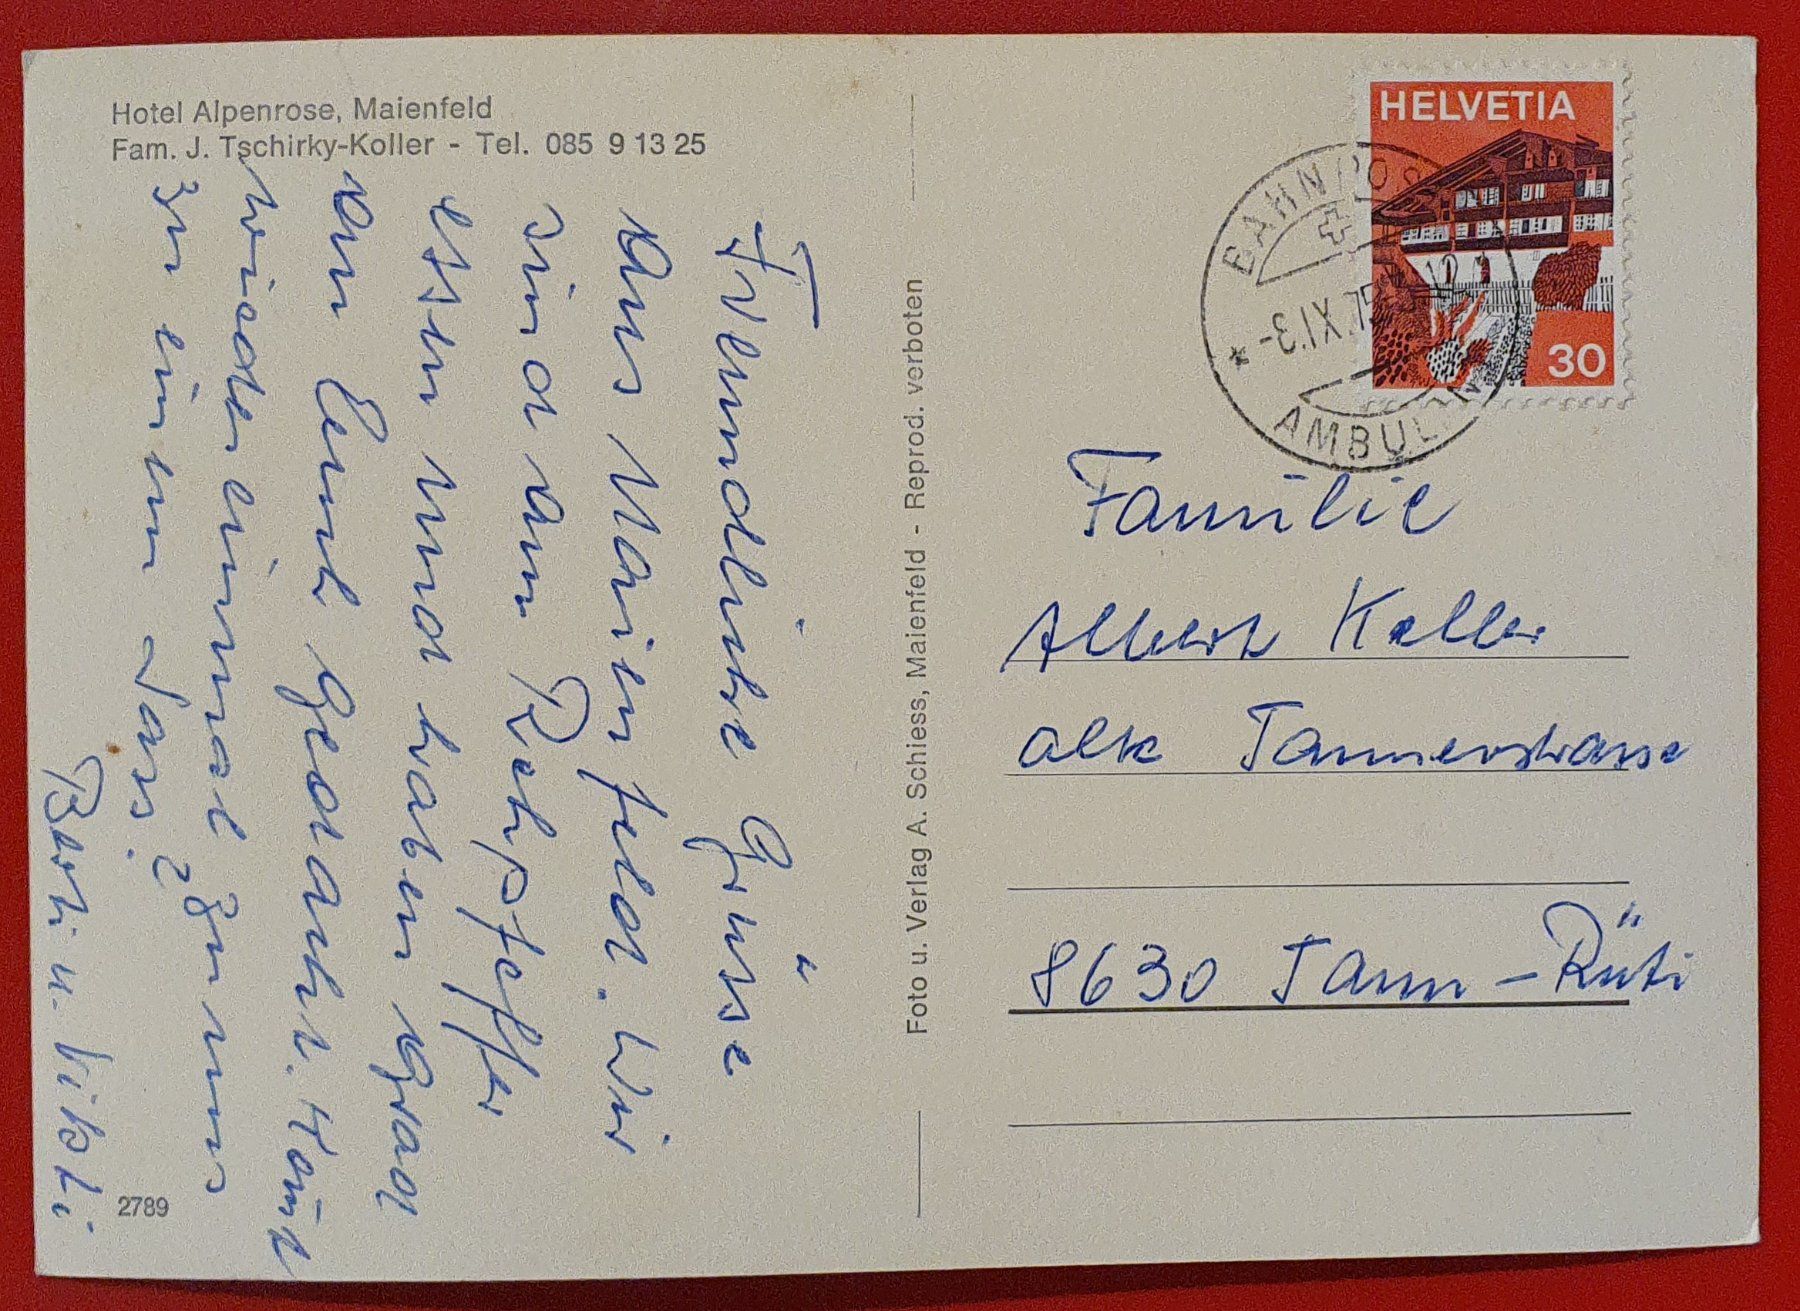 Hotel Alpenrose, Maienfeld
Fam. J. Tschirky-Koller - Tel. 085 9 13 25
Freundliche Grüsse
aus Maienfeld. Wir
sind am Rehpfeffer
essen und haben grad
an Euch gedacht. Kommt
wieder einmal zu uns
zu einem Jass?
Berti u. Vikti
2789
Foto u. Verlag A. Schiess, Maienfeld - Reprod. verboten
HELVETIA
30
BAHNPOST
-3.XI.75
AMBULANT
Familie
Albert Koller
alte Tannerstrasse
8630 Tann-Rüti